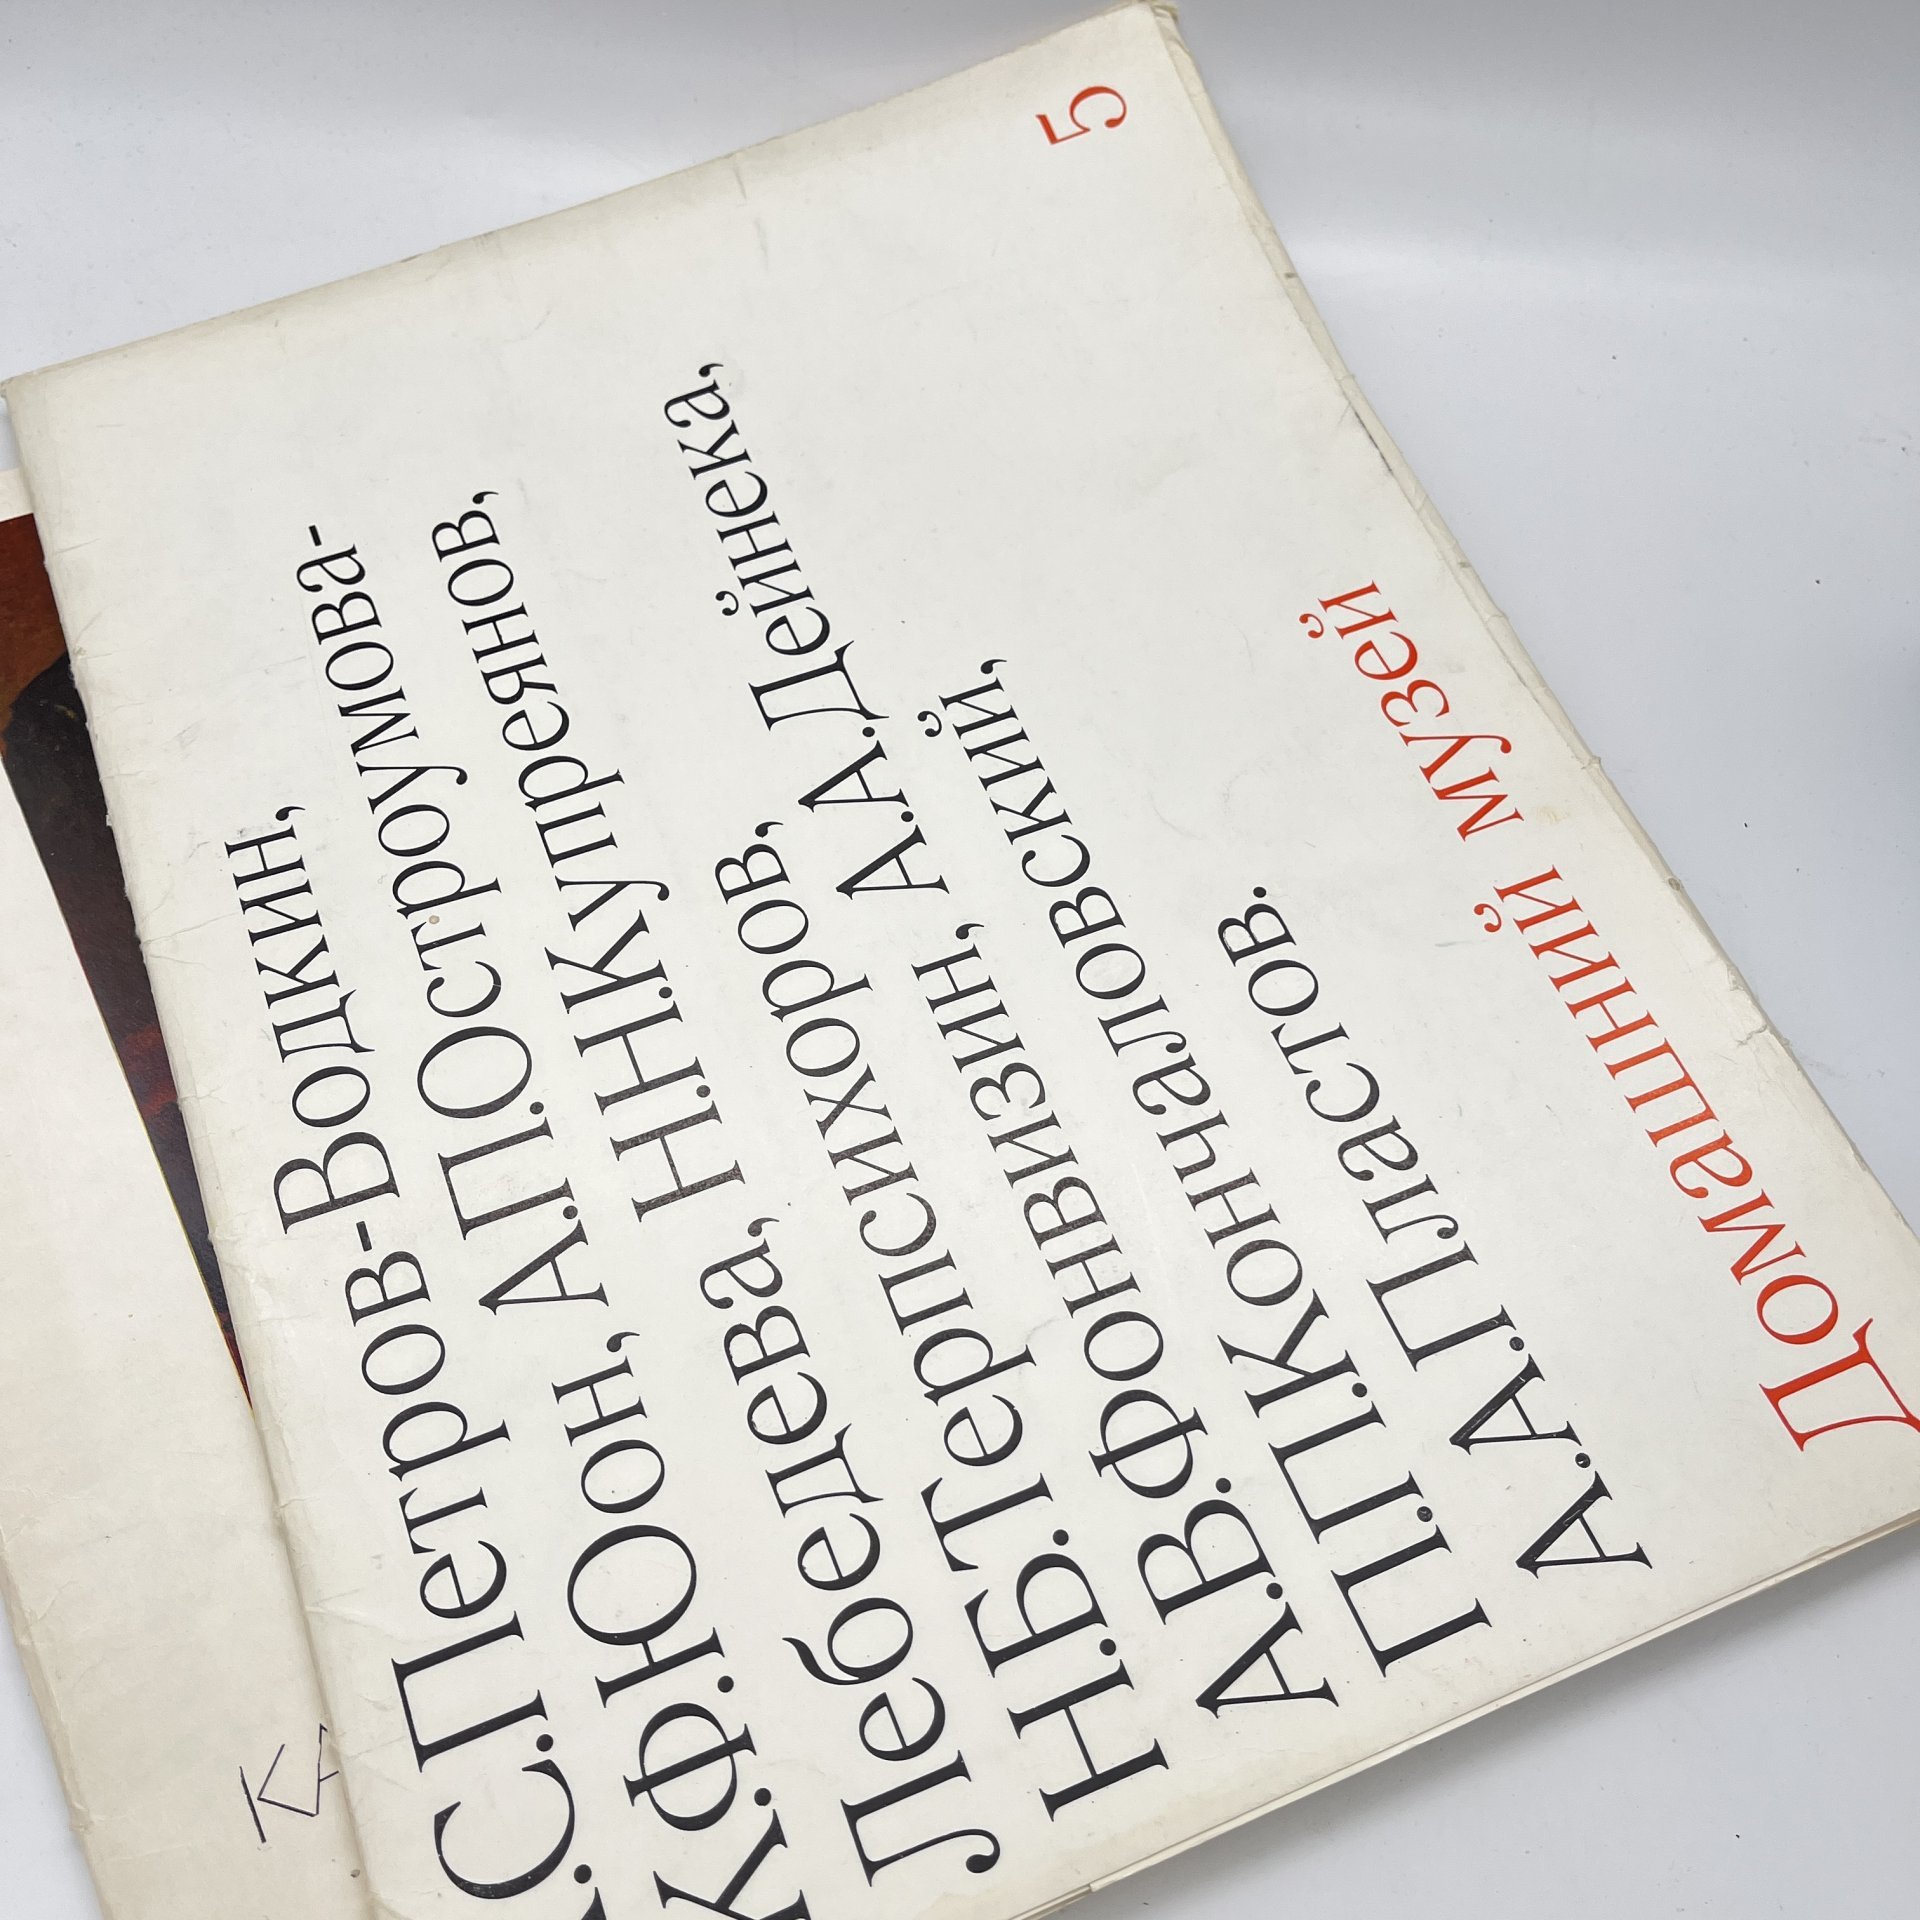 .С.Петров-Водкин,
К.Ф.Юон, А.П.Остроумова-
Лебедева, Н.Н.Купреянов,
Н.Б.Терпсихоров,
А.В.Фонвизин, А.А.Дейнека,
П.П.Кончаловский,
А.А.Пластов.
Домашний музей
5
КА